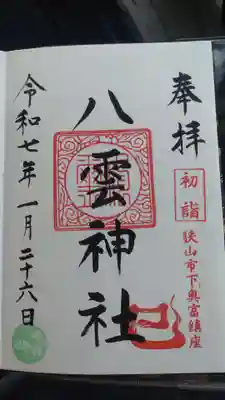 奉拝
初詣
狭山市下奥富鎮座
八雲神社
令和七年一月二十六日